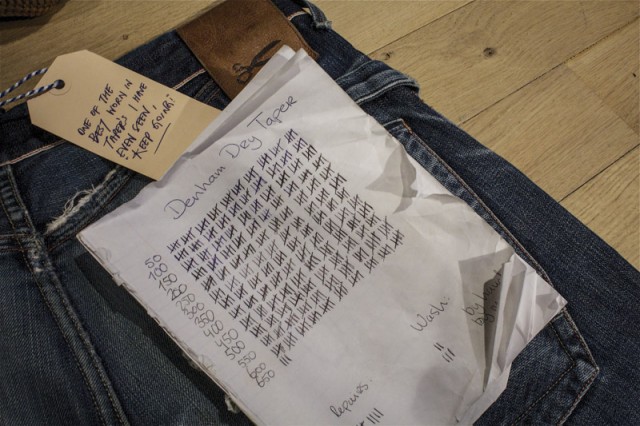 ONE OF THE
BEST WORN IN
TAPER'S I HAVE
EVER SEEN,
KEEP GOING!
Denham Dry Taper
50
100
150
200
250
300
350
400
450
500
550
600
650
Wash:
Repairs.